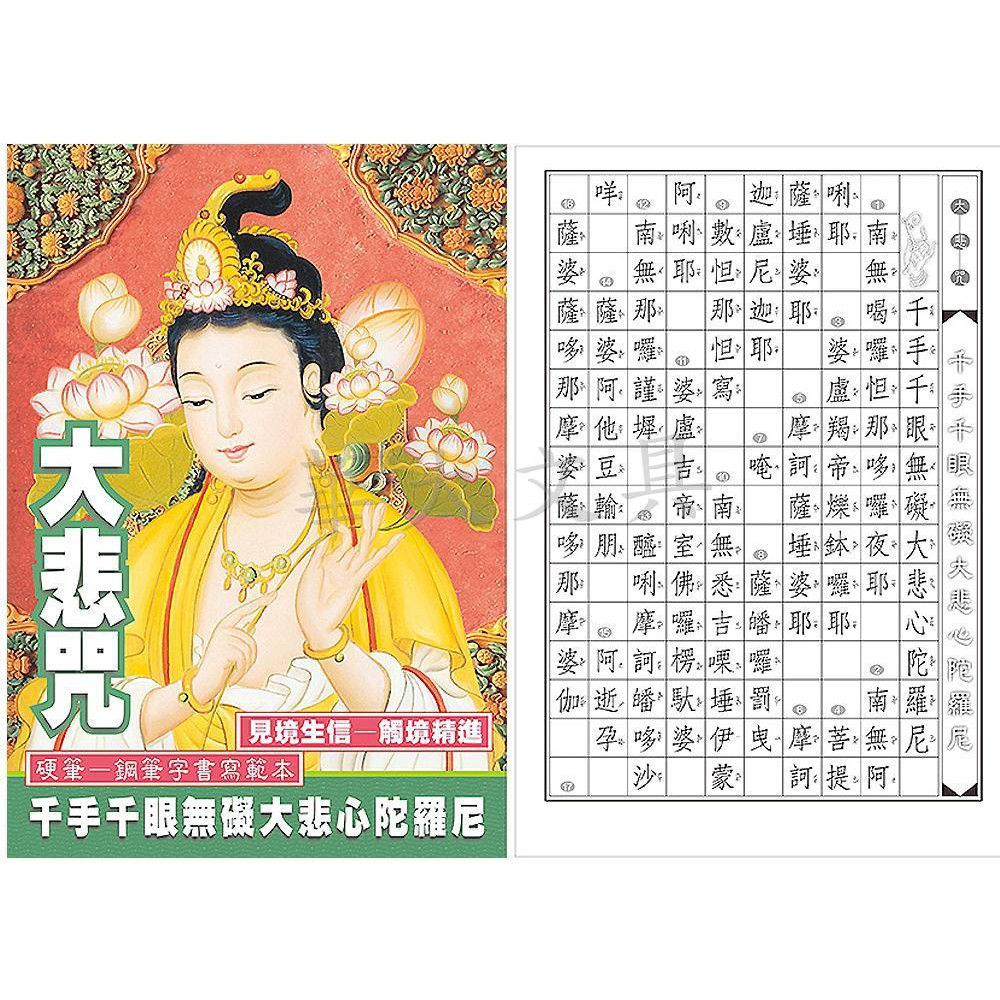 大悲咒
見境生信—觸境精進
硬筆—鋼筆字書寫範本
千手千眼無礙大悲心陀羅尼
大悲咒
千手千眼無礙大悲心陀羅尼
千手千眼無礙大悲心陀羅尼
①南無喝囉怛那哆囉夜耶②南無阿
唎耶③婆盧羯帝爍鉢囉耶④菩提
薩埵婆耶⑤摩訶薩埵婆耶⑥摩訶
迦盧尼迦耶⑦唵⑧薩皤囉罰曳
⑨數怛那怛寫⑩南無悉吉㗚埵伊蒙
阿唎耶⑪婆盧吉帝室佛囉楞馱婆
⑫南無那囉謹墀⑬醯唎摩訶皤哆沙
咩⑭薩婆阿他豆輸朋⑮阿逝孕
⑯薩婆薩哆那摩婆薩哆那摩婆伽⑰